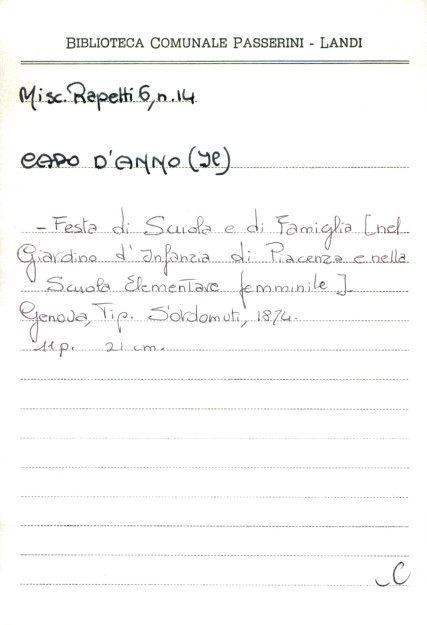 BIBLIOTECA COMUNALE PASSERINI - LANDI
Misc. Rapetti 6, n. 14
CAPO D'ANNO (Il)
- Festa di Scuola e di Famiglia [nel
Giardino d'Infanzia di Piacenza e nella
Scuola Elementare femminile].
Genova, Tip. Sordomuti, 1874.
11 p. 21 cm.
C